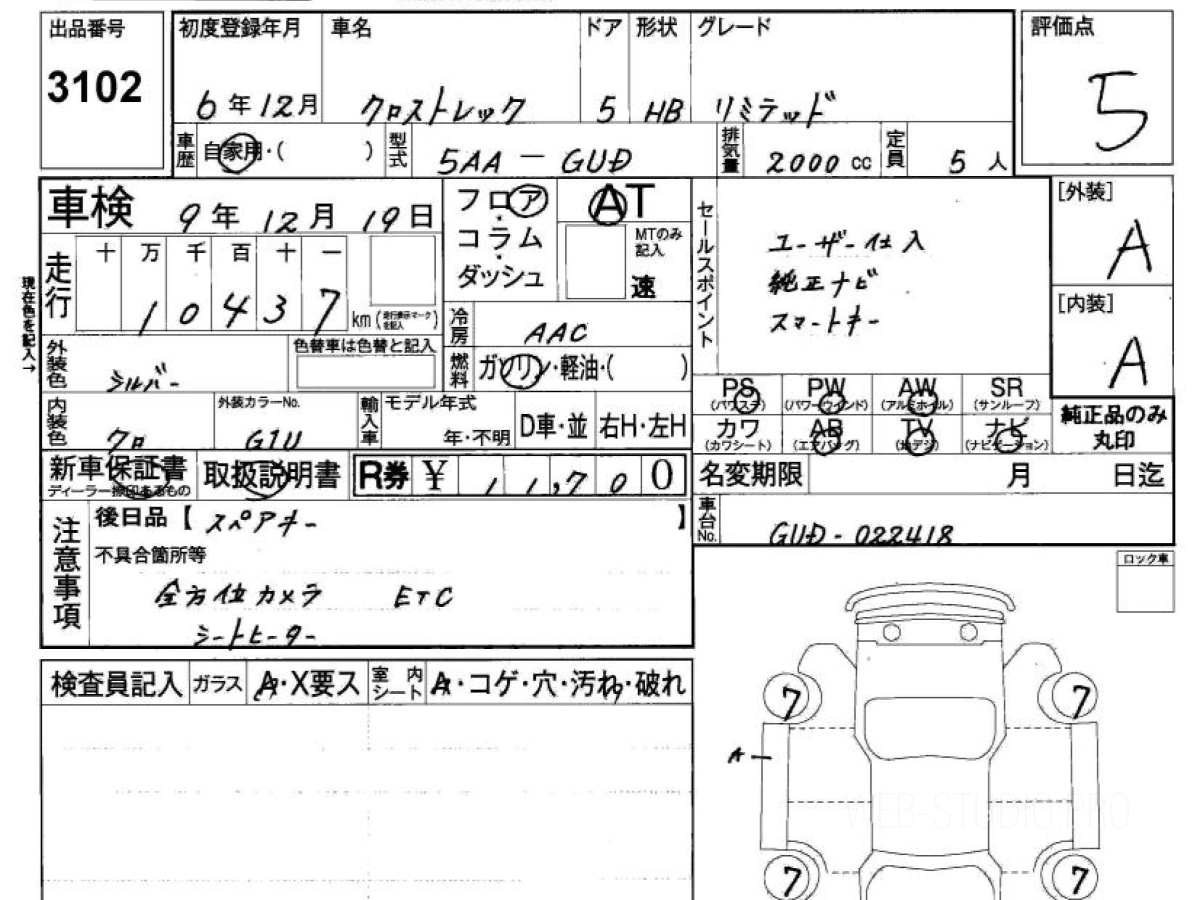 出品番号 初度登録年月 車名 ドア 形状 グレード 評価点
3102 6年12月 クロストレック 5 HB リミテッド 5
車歴 自家用・( ) 型式 5AA-GUD 排気量 2000cc 定員 5人
車検 9年12月19日 フロア AT [外装]
コラム MTのみ記入 A
ダッシュ 速
走行 十 万 千 百 十 一
1 0 4 3 7 km (走行表示マークを記入)
現在色を記入→
セールスポイント ユーザー仕入
純正ナビ
スマートキー
[内装]
A
冷房 AAC
外装色 シルバー 色替車は色替と記入 燃料 ガソリン・軽油・( )
PS (パワステ) PW (パワーウインド) AW (アルミホイル) SR (サンルーフ)
純正品のみ丸印
内装色 クロ 外装カラーNo. G1U 輸入車 モデル年式 年・不明 D車・並 右H・左H
カワ (カワシート) AB (エアバッグ) TV (地デジ) ナビ (ナビゲーション)
新車保証書 ディーラー捺印あるもの 取扱説明書 R券 ¥ 1 1,7 0 0
名変期限 月 日迄
注意事項 後日品【 スペアキー 】
車台No. GUD-022418
不具合箇所等
全方位カメラ ETC
シートヒーター
ロック車
検査員記入 ガラス A・X要ス 室内シート A・コゲ・穴・汚れ・破れ
7 7
A
WEB-STUDIO.PRO
7 7